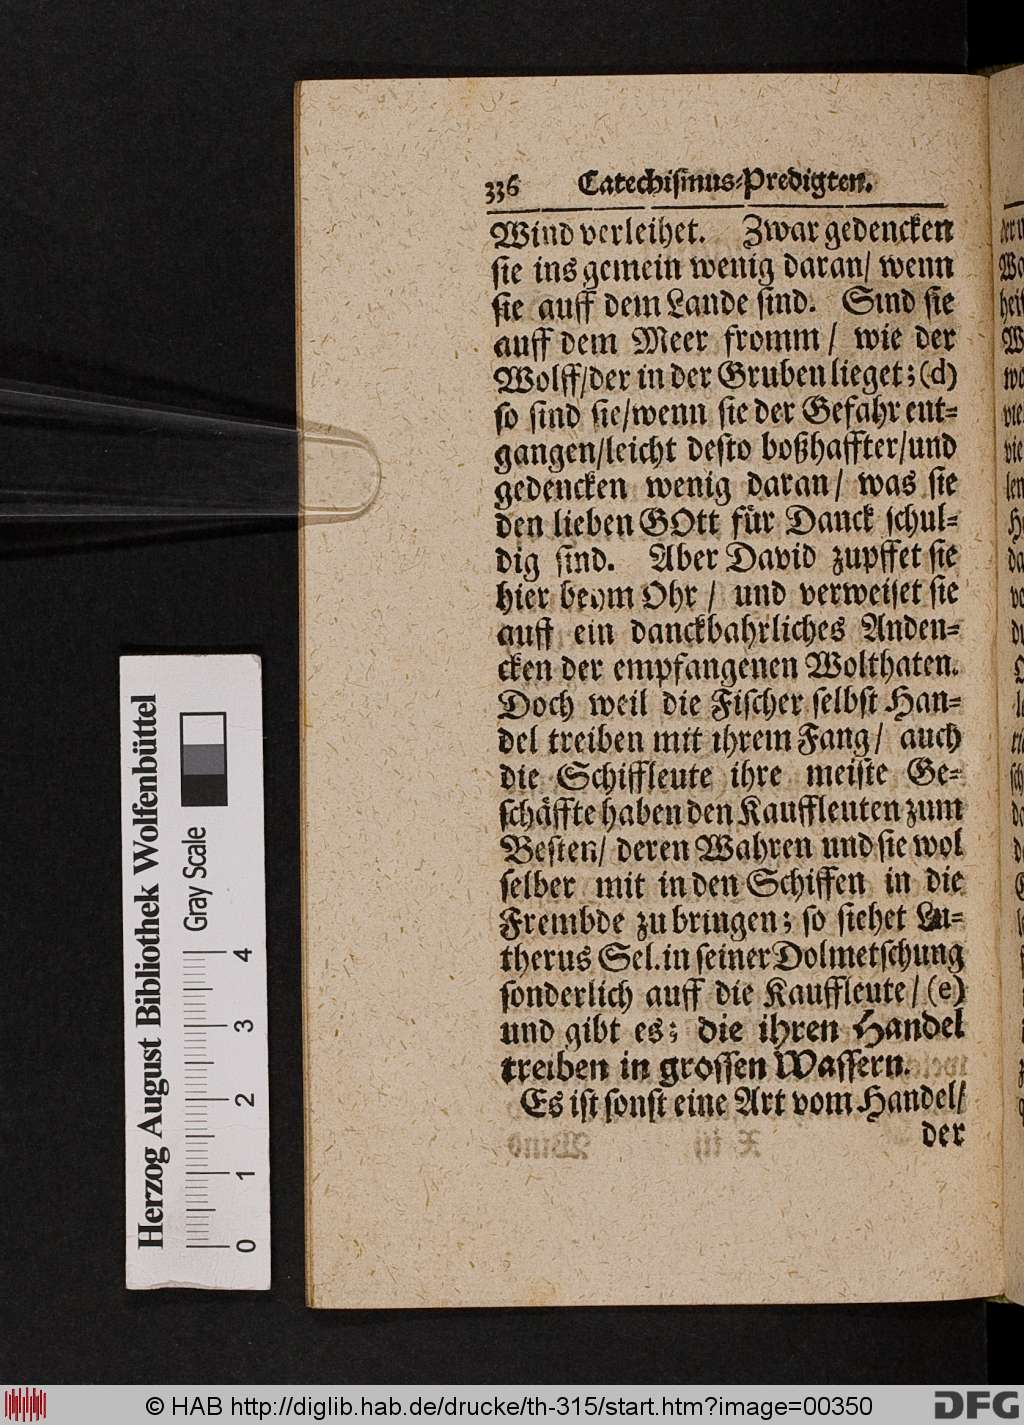 336 Catechiſmus-Predigten.
Wind verleihet. Zwar gedencken
ſie ins gemein wenig daran/ wenn
ſie auff dem Lande ſind. Sind ſie
auff dem Meer fromm/ wie der
Wolff/der in der Gruben lieget; (d)
ſo ſind ſie/wenn ſie der Gefahr ent-
gangen/leicht deſto boßhaffter/und
gedencken wenig daran/ was ſie
den lieben GOtt für Danck ſchul-
dig ſind. Aber David zupffet ſie
hier beym Ohr/ und verweiſet ſie
auff ein danckbahrliches Anden-
cken der empfangenen Wolthaten.
Doch weil die Fiſcher ſelbſt Han-
del treiben mit ihrem Fang/ auch
die Schiffleute ihre meiſte Ge-
ſchäffte haben den Kauffleuten zum
Beſten/ deren Wahren und ſie wol
ſelber mit in den Schiffen in die
Frembde zu bringen; ſo ſiehet Lu-
therus Sel. in ſeiner Dolmetſchung
ſonderlich auff die Kauffleute/ (e)
und gibt es; die ihren Handel
treiben in groſſen Waſſern.
Es iſt ſonſt eine Art vom Handel/
der
Herzog August Bibliothek Wolfenbüttel
Gray Scale
0 1 2 3 4
© HAB http://diglib.hab.de/drucke/th-315/start.htm?image=00350
DFG